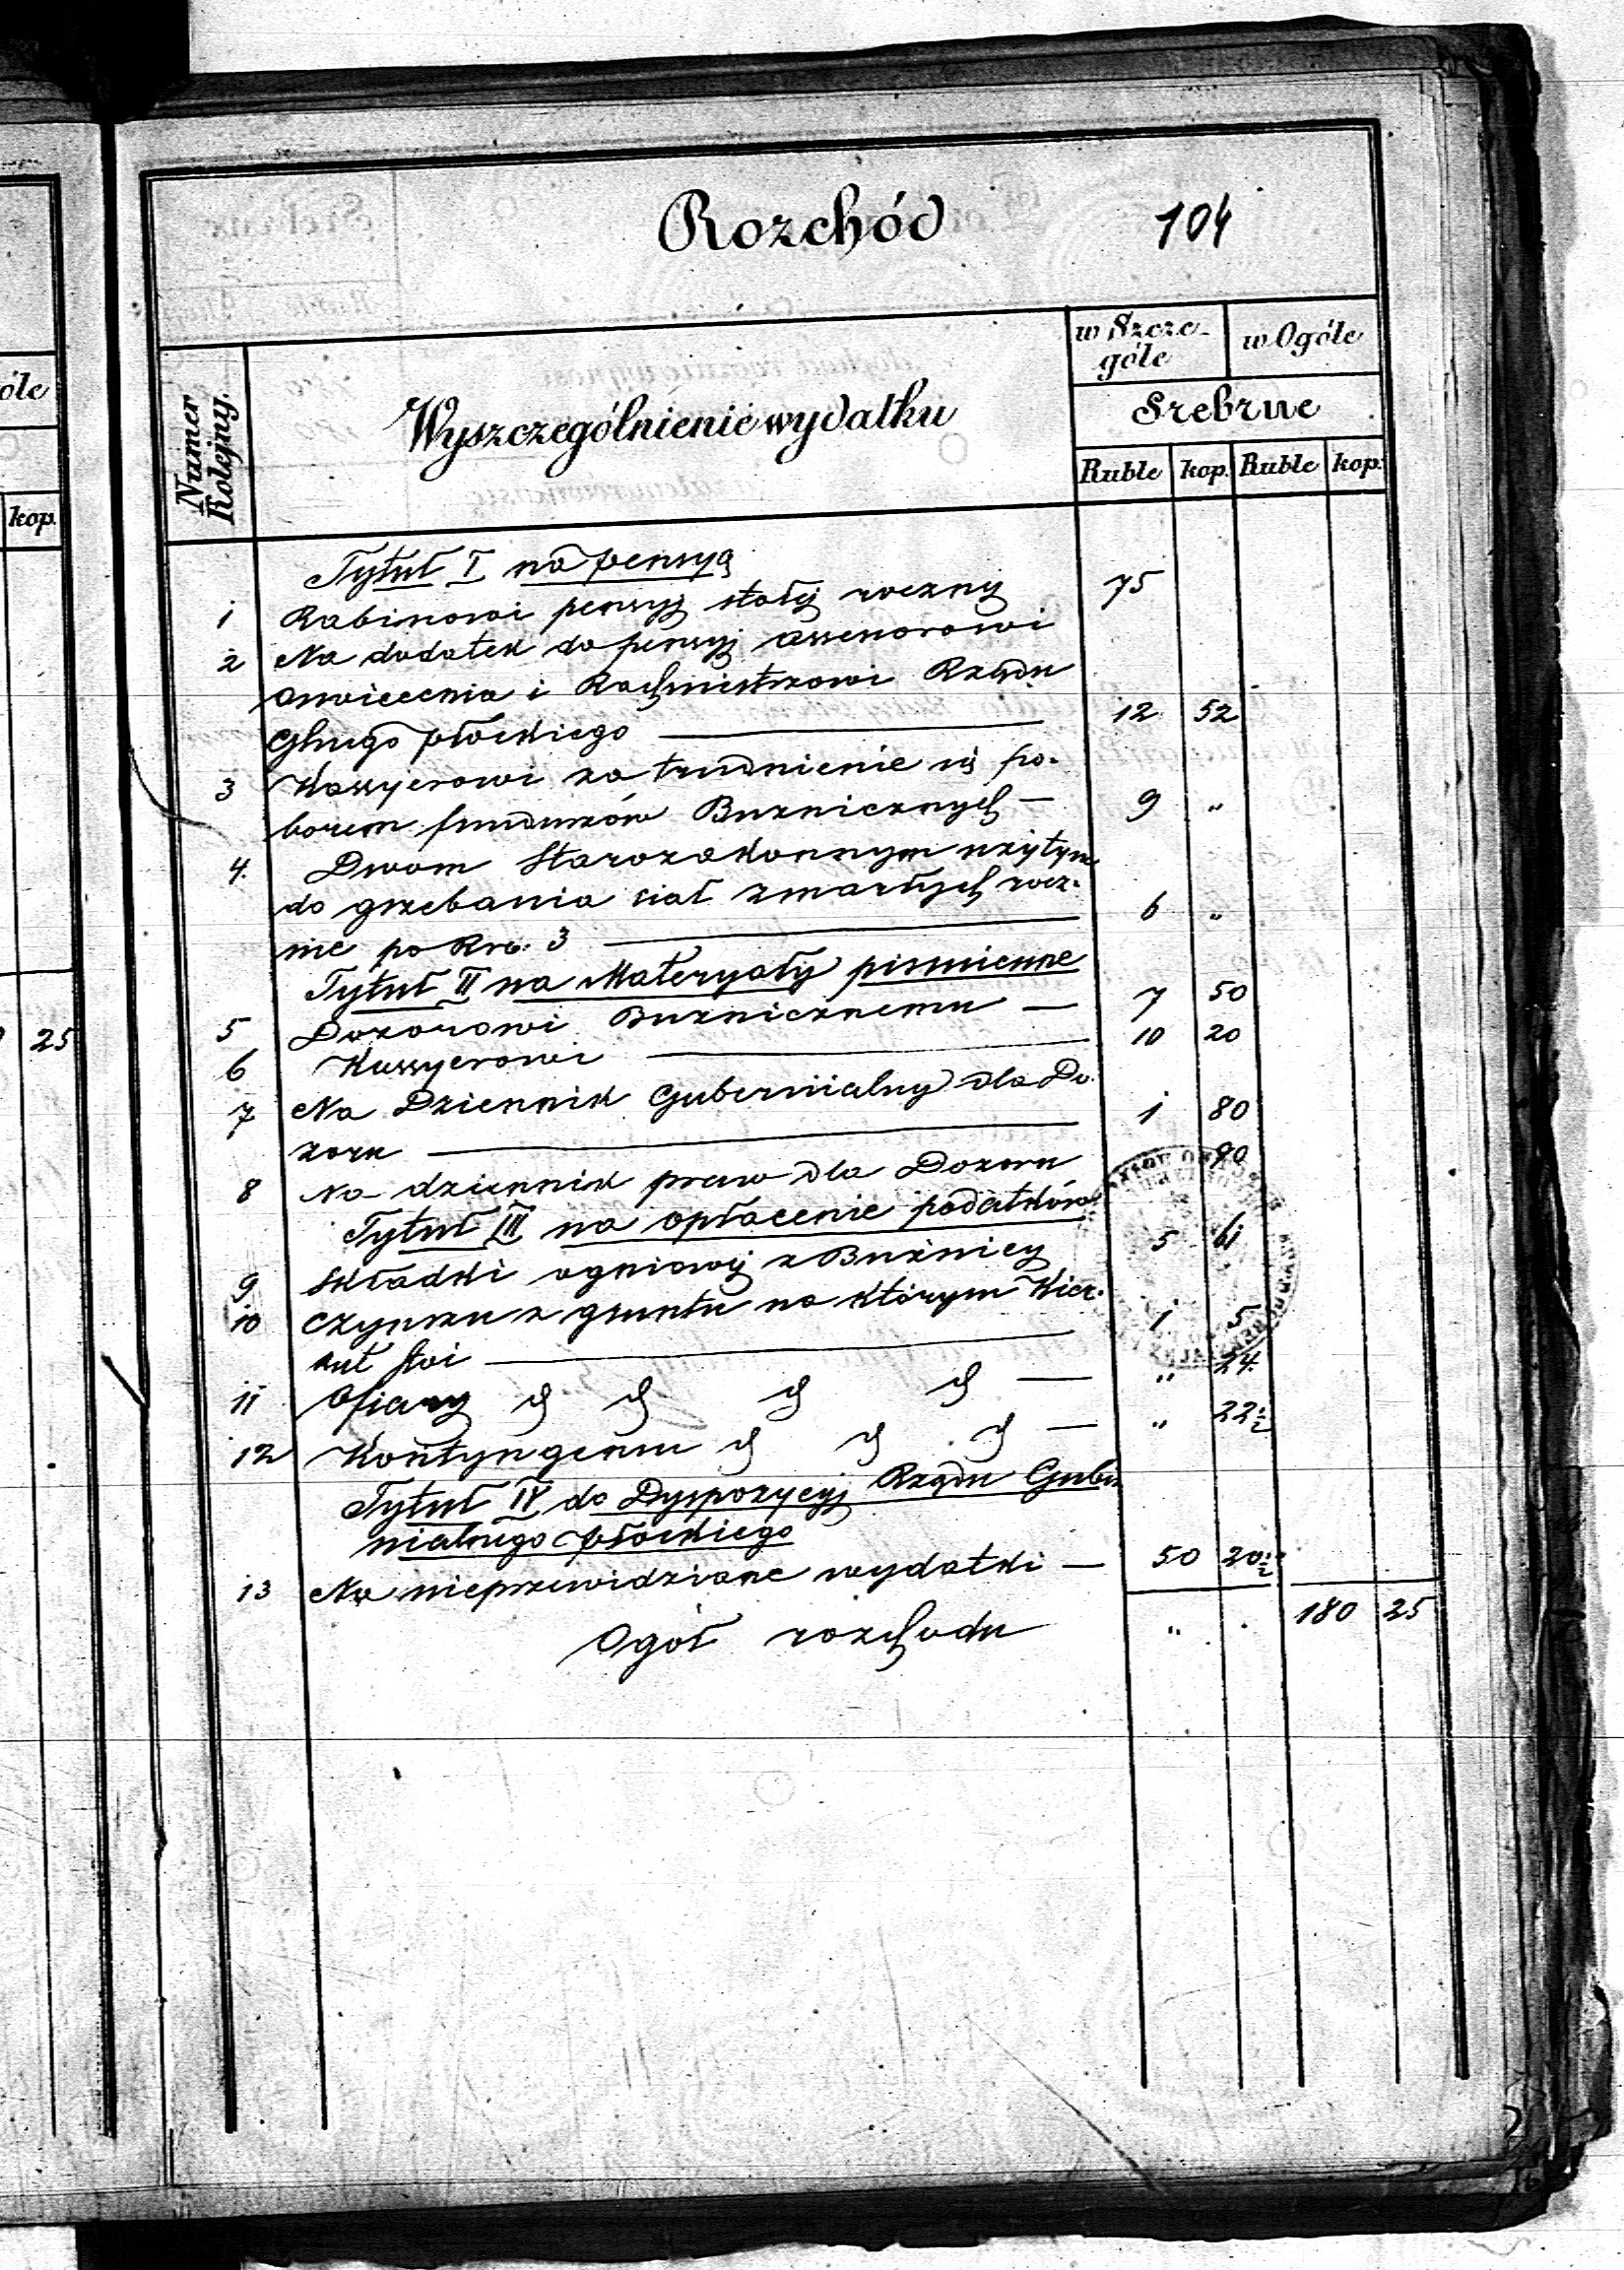 óle
kop.
25
Rozchód 104
Numer Kolejny.
Wyszczególnienie wydatku
w Szczególe
w Ogóle
Srebrne
Ruble kop. Ruble kop.
Tytuł I na pensyą
1 Rabinowi pensyj stałej roczny 75
2 Na dodatek do pensyj assesorowi
oswiecenia i Rachmistrzowi Rządu
Głnego płockiego 12 52
3 Kassyerowi za trudnienie się po-
borem funduszów Buznicznych — 9 "
4. Dwom Starozakonnym użytym
do grzebania ciał zmarłych rocz-
nie po Rrs. 3 6 "
Tytuł II na Materyały pismienne
5 Dozorowi Buznicznemu — 7 50
6 Kassyerowi 10 20
7 Na Dziennik Gubernialny dla Do-
zoru 1 80
8 Na dziennik praw dla Dozoru 90
Tytuł III na opłacenie podatków
9 Składki ogniowej z Bużnicy 5 61
10 Czynszu z gruntu na którym Kier-
kut stoi 1 5
11 Ofiary " 24
12 Kontyngensu " 22½
Tytuł IV do Dyspozycyj Rządu Guber
nialnego płockiego
13 Na nieprzewidziane wydatki — 50 20½
Ogół rozchodu " . 180 25